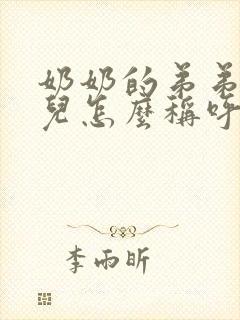 奶奶的弟弟
兒怎麼稱呼
李雨昕